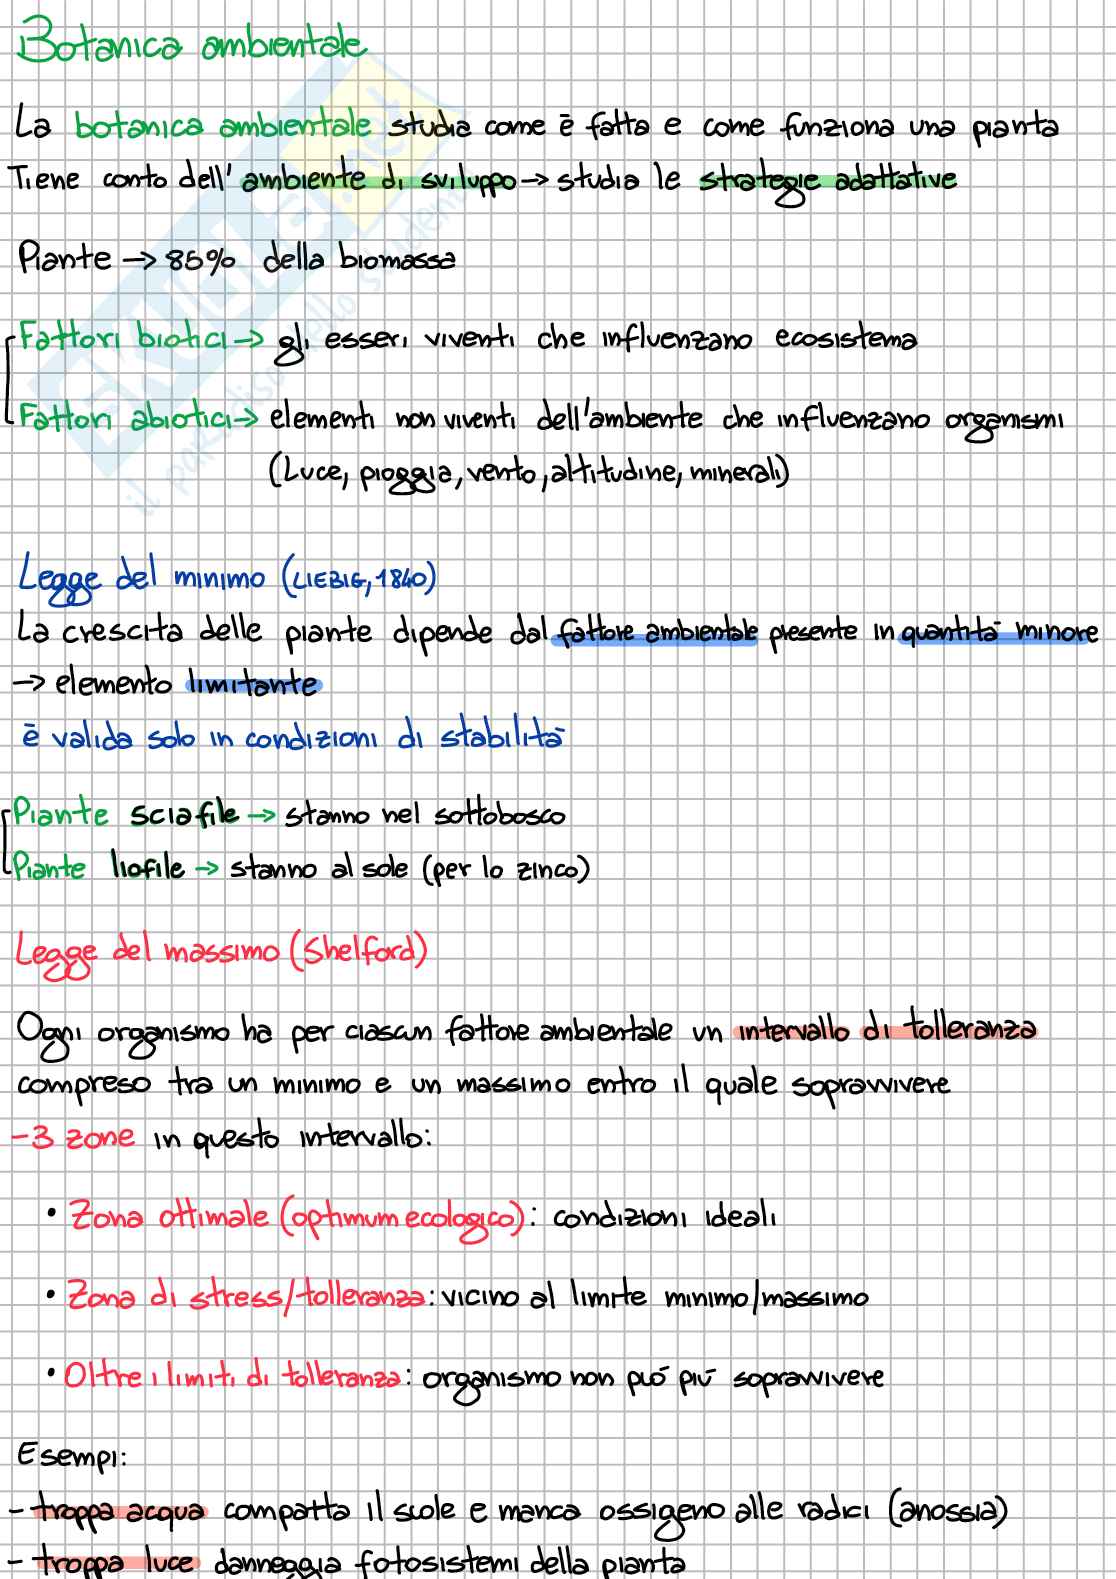 Botanica ambientale
La botanica ambientale studia come è fatta e come funziona una pianta
Tiene conto dell'ambiente di sviluppo → studia le strategie adattative
Piante → 85% della biomassa
Fattori biotici → gli esseri viventi che influenzano ecosistema
Fattori abiotici → elementi non viventi dell'ambiente che influenzano organismi
(Luce, pioggia, vento, altitudine, minerali)
Legge del minimo (LIEBIG, 1840)
La crescita delle piante dipende dal fattore ambientale presente in quantità minore
→ elemento limitante
è valida solo in condizioni di stabilità
Piante sciafile → stanno nel sottobosco
Piante liofile → stanno al sole (per lo zinco)
Legge del massimo (Shelford)
Ogni organismo ha per ciascun fattore ambientale un intervallo di tolleranza
compreso tra un minimo e un massimo entro il quale sopravvivere
-3 zone in questo intervallo:
• Zona ottimale (optimum ecologico): condizioni ideali
• Zona di stress/tolleranza: vicino al limite minimo/massimo
• Oltre i limiti di tolleranza: organismo non può più sopravvivere
Esempi:
- troppa acqua compatta il suole e manca ossigeno alle radici (anossia)
- troppa luce danneggia fotosistemi della pianta